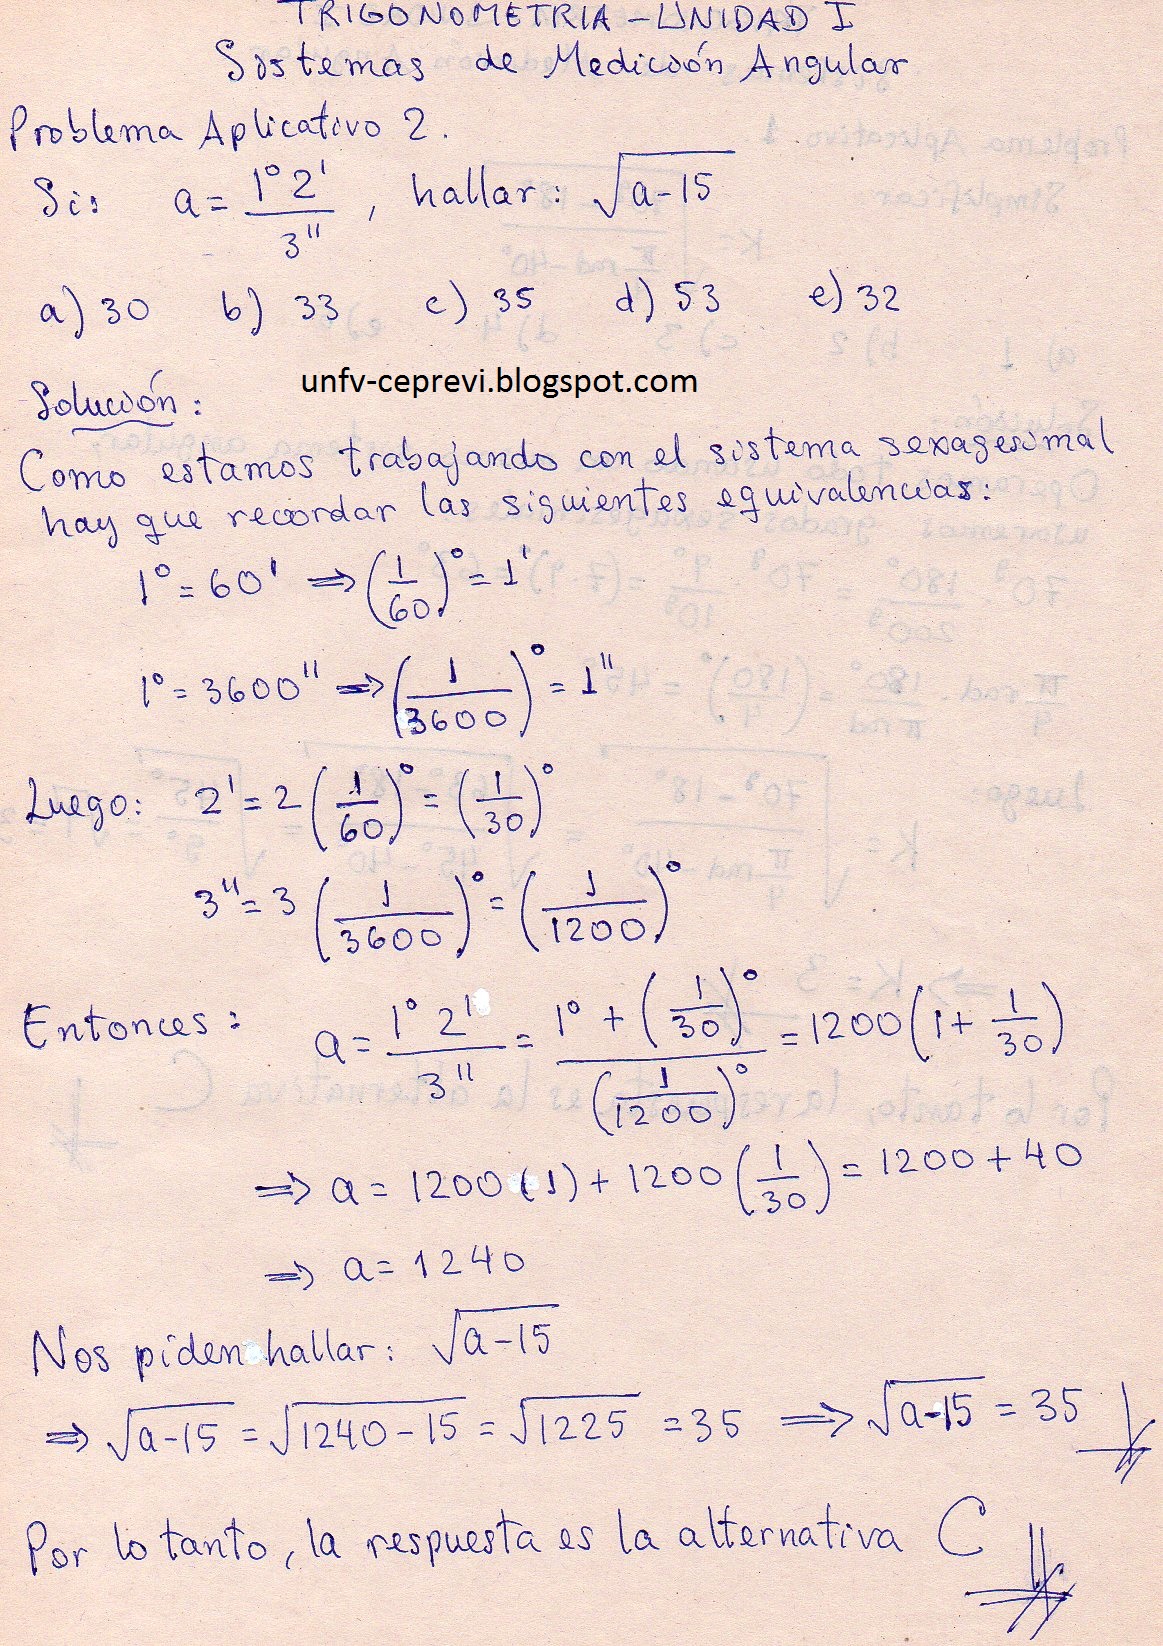 TRIGONOMETRIA - UNIDAD I
Sistemas de Medición Angular
Problema Aplicativo 2.
Si: a = 1° 2' / 3'' , hallar: √(a-15)
a) 30 b) 33 c) 35 d) 53 e) 32
unfv-ceprevi.blogspot.com
Solución:
Como estamos trabajando con el sistema sexagesimal
hay que recordar las siguientes equivalencias:
1° = 60' ⇒ (1/60)° = 1'
1° = 3600'' ⇒ (1/3600)° = 1''
Luego: 2' = 2 (1/60)° = (1/30)°
3'' = 3 (1/3600)° = (1/1200)°
Entonces: a = 1° 2' / 3'' = (1° + (1/30)°) / (1/1200)° = 1200 (1 + 1/30)
⇒ a = 1200 (1) + 1200 (1/30) = 1200 + 40
⇒ a = 1240
Nos piden hallar: √(a-15)
⇒ √(a-15) = √(1240-15) = √1225 = 35 ⇒ √(a-15) = 35
Por lo tanto, la respuesta es la alternativa C